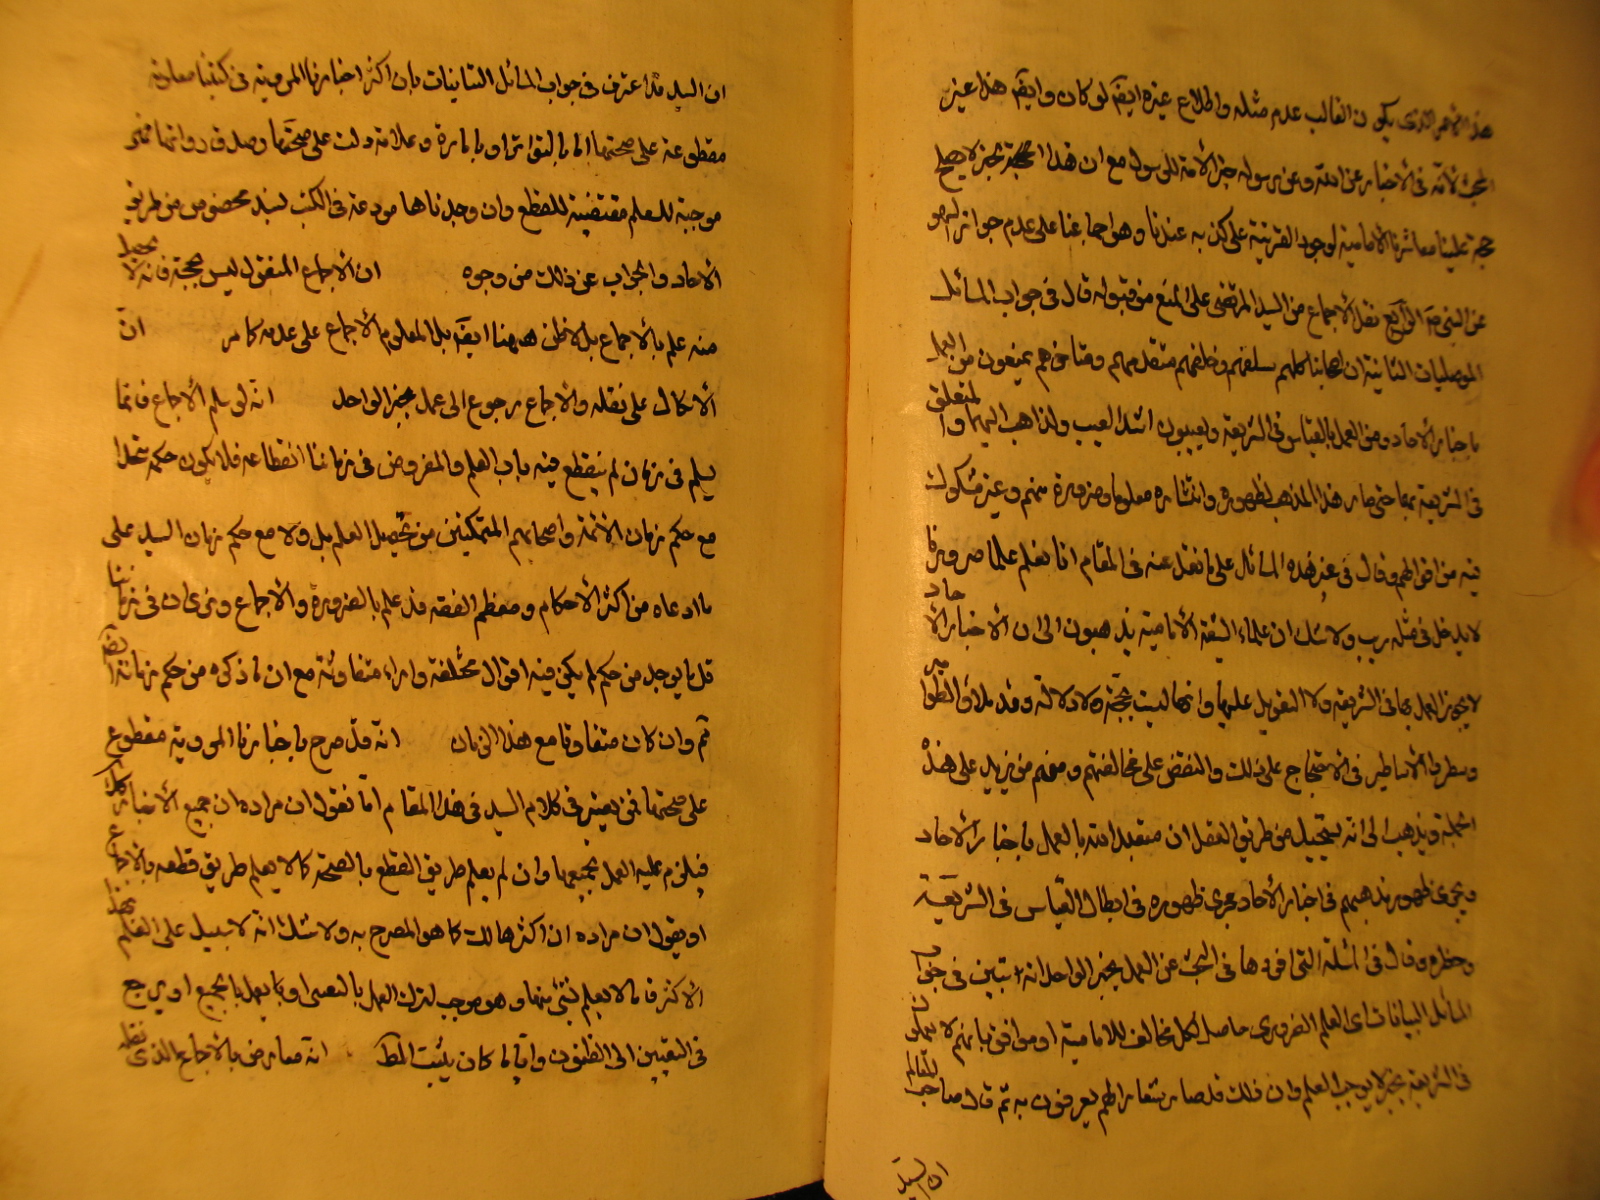 هذا الأمر الذى يكون الغالب عدم مثله واطلاع غيره ايضم لو كان وايضم هذا غير
لأنه فى الأخبار عن الله وعن رسوله خبر الأمة للرسول مع ان هذا الحجة بخبر لا يصلح
حجة علينا معاشر الأمامية لوجود القرينة على كذبه عندنا وهو اجماعنا على عدم جواز السهو
عن النبى صم الرابع نقل الأجماع من السيد المرتضى على المنع من قبوله قال فى جواب المسائل
الموصليات الثانية ان اصحابنا كلهم سلفهم وخلفهم متقدمهم ومتاخرهم يمنعون من العمل
باخبار الأحاد ومن العمل بالقياس فى الشريعة ويعيبون اشد العيب الذاهب اليهما والمتعلق
فى الشريعة بهما حتى صار هذا المذهب لظهوره وانتشاره معلوما ضرورة منهم وغير مشكوك
فيه من اقوالهم وقال فى غير هذه المسائل على ما نقل عنه فى المقام انا نعلم علما ضروريا
لا يدخل فى مثله ريب ولا شك ان علماء الشيعة الأمامية يذهبون الى ان الأخبار الأحاد
لا يجوز العمل بها فى الشريعة ولا التعويل عليها وانها ليست بحجة ولا دلالة وقد ملاؤ الطوامير
وسطروا الأساطير فى الاحتجاج على ذلك والنقض على مخالفيهم ومنهم من يزيد على هذه
الجملة ويذهب الى انه يستحيل من طريق العقل ان يتعبد الله بالعمل باخبار الأحاد
ويجرى ظهور مذهبهم فى اخبار الأحاد مجرى ظهوره فى ابطال القياس فى الشريعة
وحظره وقال فى المسئلة التى افردها فى البحث عن العمل بخبر الواحد انه تبين فى جواب
المسائل التبانيات ان العلم الضرورى حاصل لكل مخالف للامامية او موافق بانهم لا يعملون
فى الشريعة بخبر لا يوجب العلم وان ذلك قد صار شعارا لهم يعرفون به ثم قال صاحب المعالم
ان السيد
ان السيد قد اعترف فى جواب المسائل التبانيات بان اكثر اخبارنا المروية فى كتبنا معلومة
مقطوعة على صحتها اما بالتواتر او بامارة وعلامة دلت على صحتها وصدق رواتها فهى
موجبة للعلم مقتضية للقطع وان وجدناها مودعة فى الكتب بسند مخصوص من طريق
الأحاد والجواب عن ذلك من وجوه ان الأجماع المنقول ليس بحجة فانه لا يحصل
منه علم بالأجماع بل لا ظن ههنا ايضم بل المعلوم الأجماع على عدمه كما مر ان
الأتكال على نقله والأجماع رجوع الى عمل بخبر الواحد انه لو سلم الأجماع فانما
يسلم فى زمان لم ينقطع فيه باب العلم والمفروض فى زماننا انقطاعه فلا يكون حكمه متحدا
مع حكم زمان الائمة واصحابهم المتمكنين من تحصيل العلم بل ولا مع حكم زمان السيد على
ما ادعاه من اكثر الأحكام ومعظم الفقه قد علم بالضرورة والأجماع ونرى ان فى زماننا
قل ما يوجد من حكم لم يكن فيه اقوال مختلفة واراء متفاوتة مع ان ما ذكره من حكم زمانه ايضم
ثم وان كان متفاوتا مع هذا الزمان انه قد صرح باخبارنا المروية مقطوع
على صحتها فمن يعتبر فى كلام السيد فى هذا المقام اما نقول ان مراده ان جميع الأخبار كذلك
فيلزم عليه العمل بجميعها وان لم يعلم طريق القطع بالصحة كما لا يعلم طريق قطعه بالأجماع
او يقول ان مراده ان اكثرها لك كما هو المصرح به ولا شك انه لا سبيل على العلم بهذا
الأكثر فاما لا يعلم بشئ منها وهو موجب لترك العمل بالتعبد او يعمل بالجميع او يرجع
فى التعيين الى الظنون وايا ما كان يثبت المط انه معارض بالأجماع الذى نقله